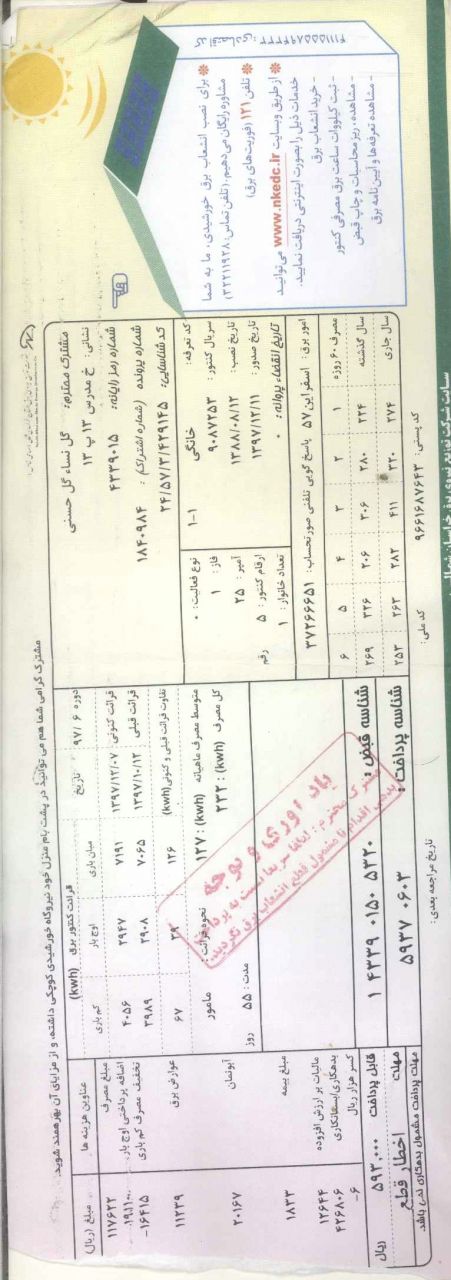 کد اقتصادی: ۴۱۱۵۵۵۸۹۴۳۳۳
* برای نصب انشعاب برق خورشیدی، ما به شما
مشاوره رایگان می‌دهیم. (تلفن تماس: ۳۲۲۱۱۹۲۸)
* تلفن ۱۲۱ (فوریت‌های برق)
* از طریق وبسایت www.nkedc.ir می‌توانید
خدمات ذیل را بصورت اینترنتی دریافت نمایید.
- خرید انشعاب برق
- ثبت کیلووات ساعت برق مصرفی کنتور
- مشاهده، ریز محاسبات و چاپ قبض
- مشاهده تعرفه‌ها و آیین نامه برق
مشترک گرامی شما هم می توانید در پشت بام منزل خود نیروگاه خورشیدی کوچکی داشته، و از مزایای آن بهره‌مند شوید.
مشترک محترم: گل نساء گل حسنی
نشانی: خ مدرس ۱۳ پ ۱۳
شماره رمز رایانه: ۴۳۳۹۰۱۵
شماره پرونده (شماره اشتراک): ۱۸۴۰۹۸۴
کد شناسایی: ۲۴/۵۷/۳/۴۲۹۱۴۵
کد تعرفه: خانگی ۱-۱
نوع فعالیت: ۰
سریال کنتور: ۹۰۸۷۲۵۳
فاز: ۱
تاریخ نصب: ۱۳۸۸/۰۸/۱۲
آمپر: ۲۵
تاریخ صدور: ۱۳۹۷/۱۲/۱۱
ارقام کنتور: ۵ رقم
تاریخ انقضاء پروانه: ۰
تعداد خانوار: ۱
امور برق: اسفراین ۵۷ پاسخ گویی تلفنی صورتحساب: ۳۷۲۶۶۶۵۱
مصرف ۶۰ روزه ۱ ۲ ۳ ۴ ۵ ۶
سال گذشته ۲۲۴ ۲۸۰ ۳۰۶ ۲۰۶ ۲۲۶ ۲۶۹
سال جاری ۲۷۴ ۳۲۰ ۴۱۱ ۲۸۲ ۲۶۳ ۲۵۳
کد پستی: ۹۶۶۱۶۸۷۶۴۳
کد ملی:
دوره ۹۷/۶
تاریخ
قرائت کنتور برق (kwh)
میان باری
اوج بار
کم باری
قرائت کنونی: ۱۳۹۷/۱۲/۰۷ ۷۱۹۱ ۲۹۴۷ ۴۰۵۶
قرائت قبلی: ۱۳۹۷/۱۰/۱۲ ۷۰۶۵ ۲۹۰۸ ۳۹۸۹
تفاوت قرائت قبلی و کنونی (kwh) ۱۲۶ ۳۹ ۶۷
متوسط مصرف ماهیانه (kwh): ۱۲۷
نحوه قرائت: مامور
کل مصرف (kwh): ۲۳۲
مدت: ۵۵ روز
یاد آوری و توجه
شناسه قبض: ۱ ۴۳۳۹ ۰۱۵۰ ۵۳۲۰
شناسه پرداخت: ۵۹۳۷ ۰۶۰۳
تاریخ مراجعه بعدی:
عناوین هزینه ها مبلغ (ریال)
مبلغ مصرف ۱۱۷۶۲۲
اضافه پرداختی اوج بار ۱۹۱۱۰
تخفیف مصرف کم باری -۱۶۴۱۵
عوارض برق ۱۱۲۳۹
آبونمان ۲۰۱۶۷
مبلغ بیمه ۱۸۳۳
مالیات بر ارزش افزوده ۱۲۶۴۴
بدهکاری/بستانکاری ۴۲۶۸۰۶
کسر هزار ریال -۶
قابل پرداخت ۵۹۳,۰۰۰ ریال
مهلت اخطار قطع
مهلت پرداخت مشمول بدهکاری نمی باشد.